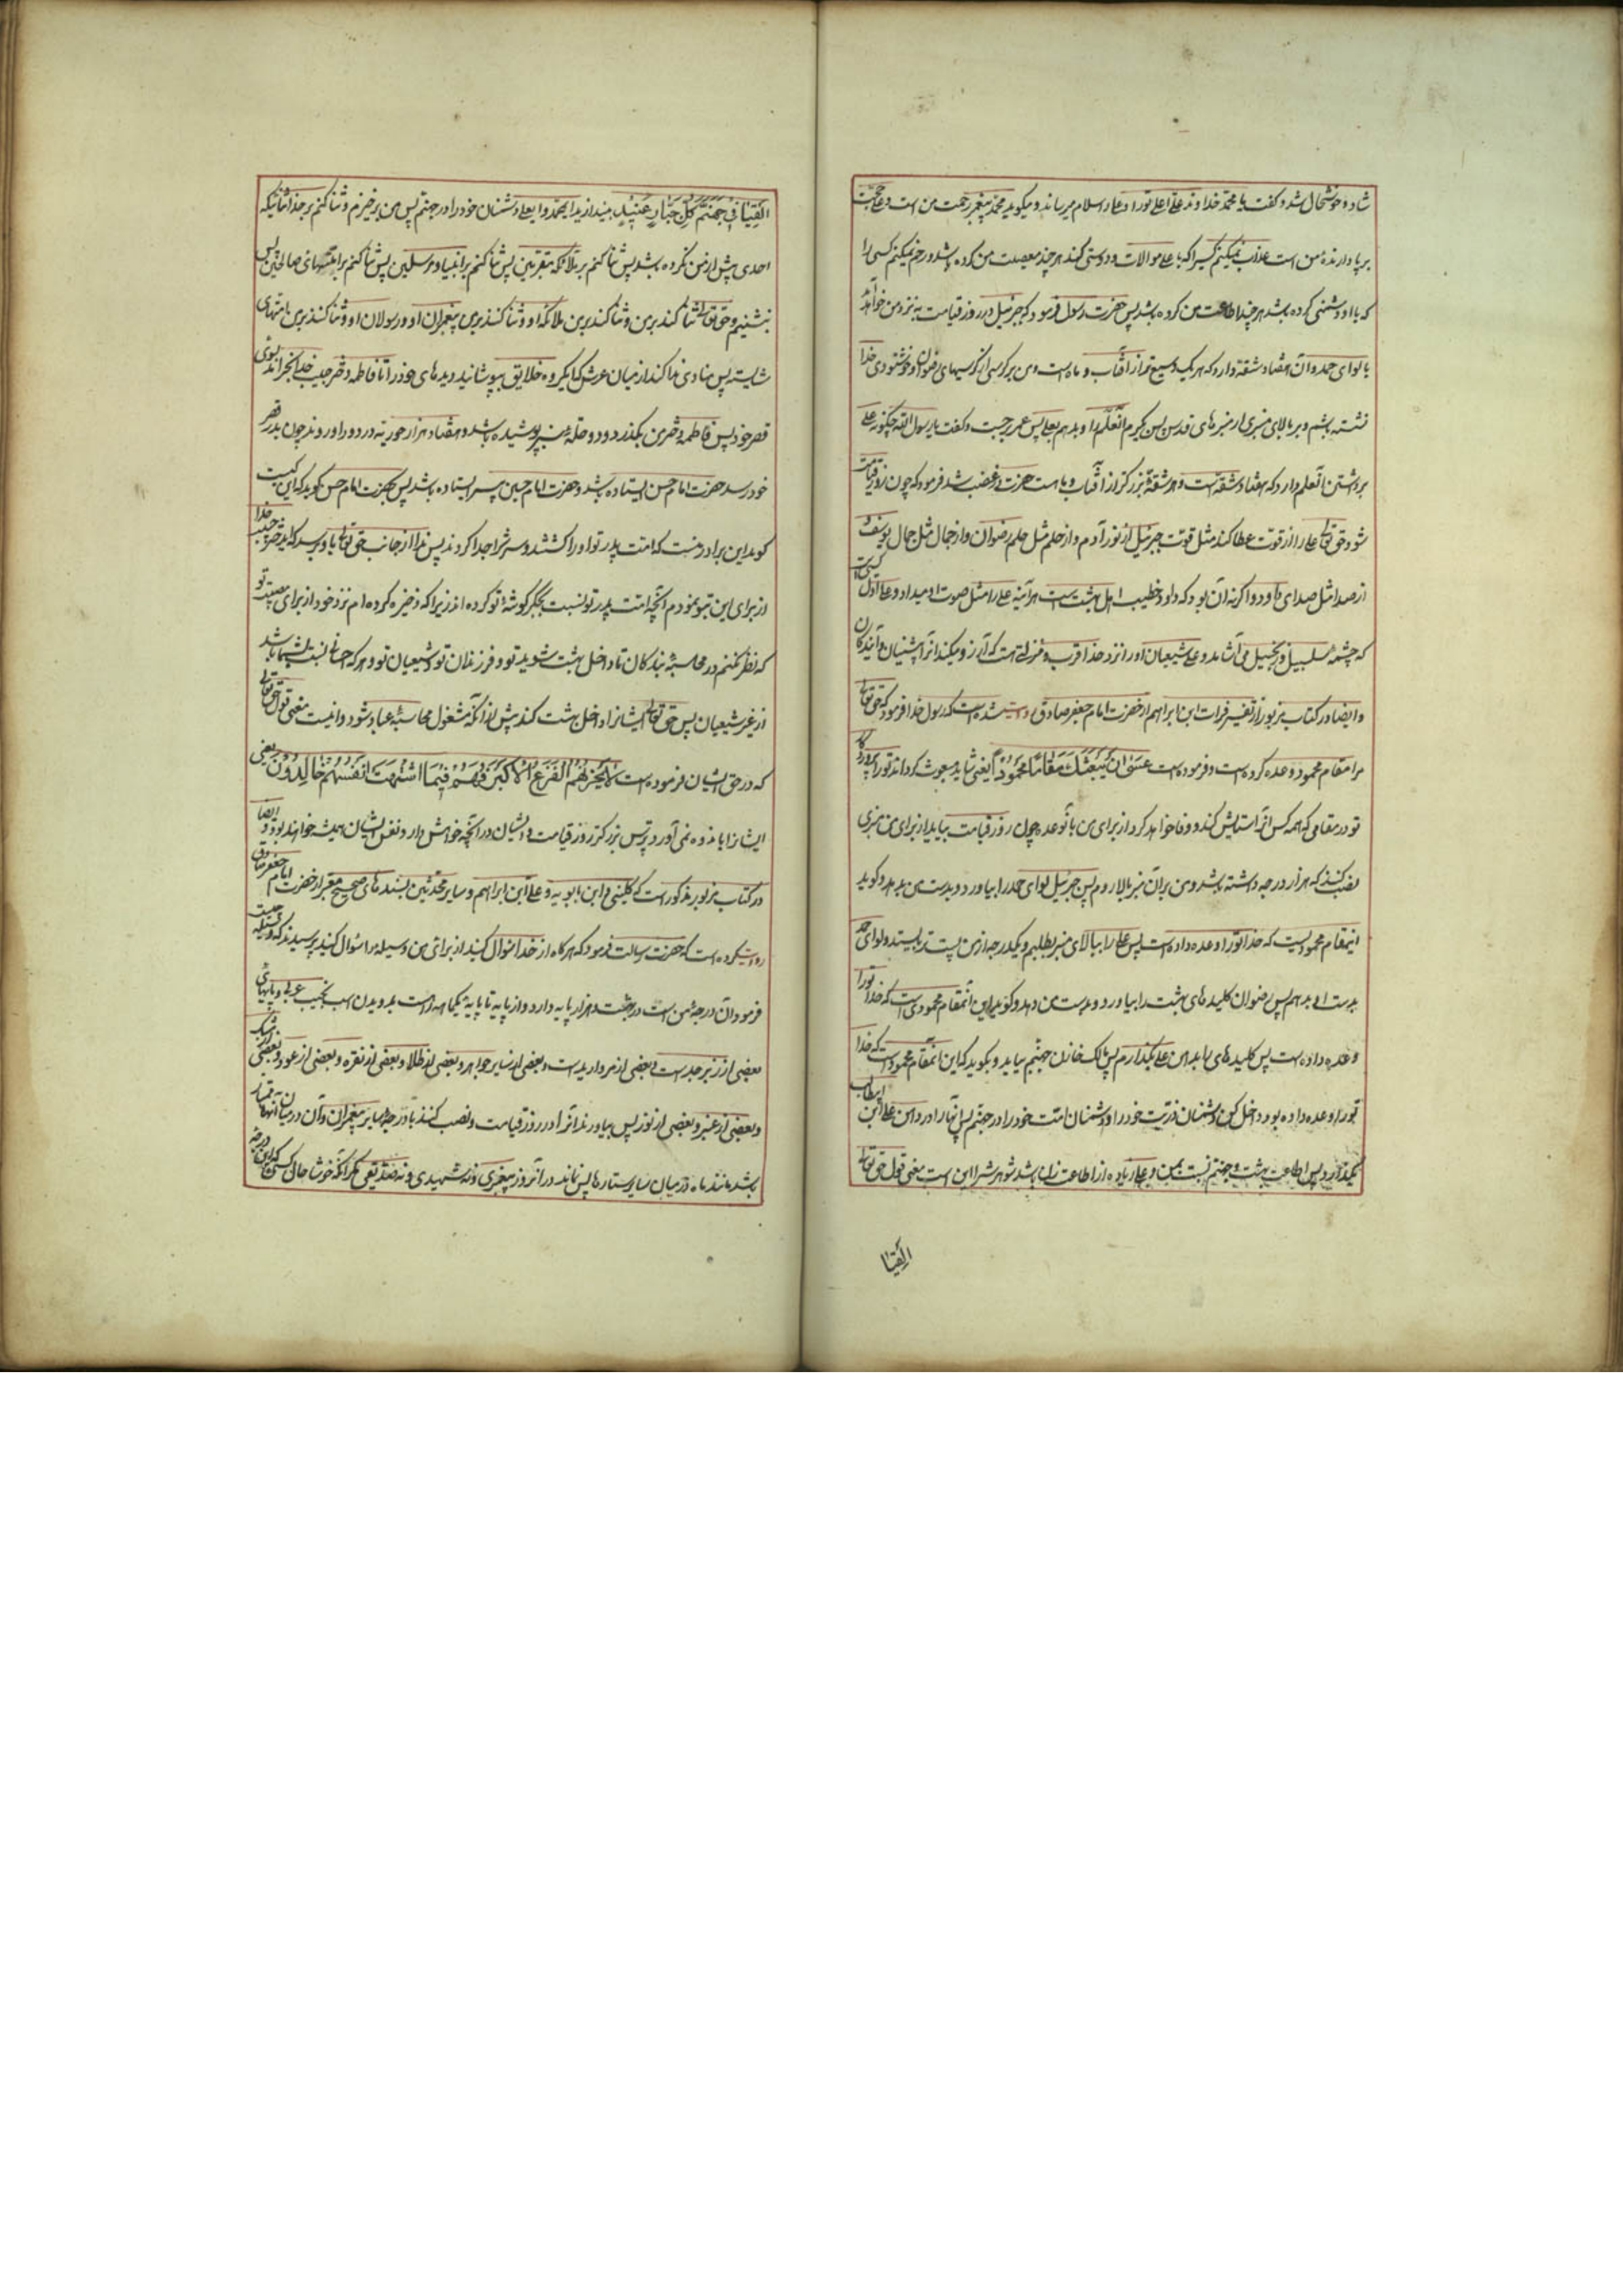 شاد و خوشحال شد و گفت یا محمد خداوند علی اعلی تو را و علی را سلام میرساند و میگوید محمد پیغمبر رحمت من است و علی حجت
برپا دارنده من است عذاب نمیکنم کسیرا که با علی موالات و دوستی کند هر چند معصیت من کرده باشد و رحم نمیکنم کسی را
که با او دشمنی کرده باشد هر چند اطاعت من کرده باشد پس حضرت رسول فرمود که جبرئیل در روز قیامت به نزد من خواهد آمد
با لوای حمد و آن هفتاد شقه دارد که هر یک وسیع تر از آفتاب و ماه است و من بر کرسی از کرسیهای رضوان و خوشنودی خدا
نشسته باشم و بر بالای منبری از منبرهای قدس پس گیرم آنعلم را و بدهم بعلی پس عمر برجست و گفت یا رسول الله چگونه علی
برداشتن آنعلم دارد که هفتاد شقه است و هر شقه بزرگتر از آفتاب و ماه است حضرت در غضب شد فرمود که چون روز قیامت
شود حق تعالی علی را از قوت عطا کند مثل قوت جبرئیل از نور آدم و از حلم مثل حلم رضوان و از جمال مثل جمال یوسف و
از صدا مثل صدای داود و اگر نه آن بود که داود خطیب اهل بهشت است هر آینه علی را مثل صوت او میداد و علی اول کسی است
که چشمه سلسبیل و زنجبیل می آشامد و علی و شیعیان او را نزد خدا قرب و منزلتی است که آرزو میکند آنرا پیشینیان و آیندگان
و ایضا در کتاب مزبور از تفسیر فرات ابن ابراهیم از حضرت امام جعفر صادق روایت شده است که رسول خدا فرمود که حق تعالی
مرا مقام محمود وعده کرده است و فرموده است عَسَی اَنْ یَبْعَثَكَ رَبُّكَ مَقَامًا مَحْمُودًا یعنی شاید مبعوث گرداند تو را پروردگار
تو در مقامی که همه کس آنرا ستایش کند و وفا خواهد کرد از برای من بآن وعده چون روز قیامت بیاید از برای من منبری
نصب کنند که هزار درجه داشته باشد و من بر آن منبر بالا روم پس جبرئیل لوای حمد را بیاورد و بدست من بدهد و گوید
اینمقام محمودیست که خدا تو را وعده داده است پس علی را ببالای منبر بطلبم و یکدرجه از من پست تر بایستد و لوای حمد
بدست او بدهم پس رضوان کلیدهای بهشت را بیاورد و بدست من دهد و گوید این آنمقام محمودی است که خدا تو را
وعده داده است پس کلیدهای را بدامن علی بگذارم پس مالک خازن جهنم بیاید و بگوید که این آنمقام محمود است که خدا
تو را وعده داده بود داخل کن دشمنان ذریت خود را و دشمنان امت خود را در جهنم پس آنها را در دامن علی ابن ابیطالب
بگذارد پس اطاعت بهشت و جهنم نسبت بمن و علی زیاده از اطاعت زن باشد شوهرش را این است معنی قول حق تعالی
اَلْقِیَا
اَلْقِیَا فِی جَهَنَّمَ کُلَّ جَبَّارٍ عَنِیدٍ بیندازید ایمحمد و ایعلی دشمنان خود را در جهنم پس من برخیزم و ثنا کنم بر خدا ثنائیکه
احدی پیش از من نکرده باشد پس ثنا کنم بر ملائکه مقربین پس ثنا کنم بر انبیا و مرسلین پس ثنا کنم بر امتهای صالحین پس
بنشینم و حق تعالی ثنا کند بر من و ثنا کنند بر من ملائکه او و ثنا کنند بر من پیغمبران او و رسولان او و ثنا کنند بر من امتهای
شایسته پس منادی ندا کند از میان عرش که ایگروه خلایق بپوشانید دیده های خود را تا فاطمه دختر حبیب خدا بخرامد بسوی
قصر خود پس فاطمه دختر من بگذرد و دو حله سبز پوشیده باشد و هفتاد هزار حوریه در دور او روند چون بدر قصر
خود رسد حضرت امام حسن ایستاده باشد و حضرت امام حسین بی سر ایستاده باشد پس بحضرت امام حسن گوید که این کیست
گوید این برادر منست که امت پدر تو او را کشتند و سرش را جدا کردند پس ندا از جانب حق تعالی باو رسد که ای دختر حبیب خدا
از برای این بتو نمودم آنچه امت پدر تو نسبت بجگر گوشه تو کرده اند زیرا که ذخیره کرده ام نزد خود از برای مصیبت تو
که نظر نکنم در محاسبه بندگان تا داخل بهشت شوید تو و فرزندان تو و شیعیان تو و هر که احسانی نسبت بشما کرده باشد
از غیر شیعیان پس حق تعالی ایشانرا داخل بهشت کند پیش از آنکه مشغول محاسبه عباد شود و اینست معنی قول حق تعالی
که در حق ایشان فرموده است لَا یَحْزُنُهُمُ الْفَزَعُ الْاَکْبَرُ وَهُمْ فِیمَا اشْتَهَتْ اَنْفُسُهُمْ خَالِدُونَ یعنی
ایشانرا باندوه نمی آورد ترس بزرگتر روز قیامت و ایشان در آنچه خواهش دارد نفس ایشان همیشه خواهند بود و ایضا
در کتاب مزبور مذکور است که کلینی و ابن بابویه و علی ابن ابراهیم و سایر محدثین بسندهای صحیح معتبر از حضرت امام جعفر صادق
روایت کرده است که حضرت رسالت فرمود که هر گاه از خدا سؤال کنید از برای من وسیله را سؤال کنید پرسیدند که وسیله چیست
فرمود آن درجه من است در بهشت و هزار پایه دارد و از پایه تا پایه یکماهه راه است بدویدن اسب نجیب عربی و پایهای
بعضی از زبرجد است و بعضی از مروارید است و بعضی از سایر جواهر و بعضی از طلا و بعضی از نقره و بعضی از عود و بعضی از مشک
و بعضی از عنبر و بعضی از نور پس بیاورند آنرا در روز قیامت و نصب کنند با درجهای سایر پیغمبران و آن در میان آنها ممتاز
باشد مانند ماه در میان سایر ستاره ها پس نماند در آنروز پیغمبری و نه شهیدی و نه صدیقی مگر آنکه خوشا حال کسی که این درجه